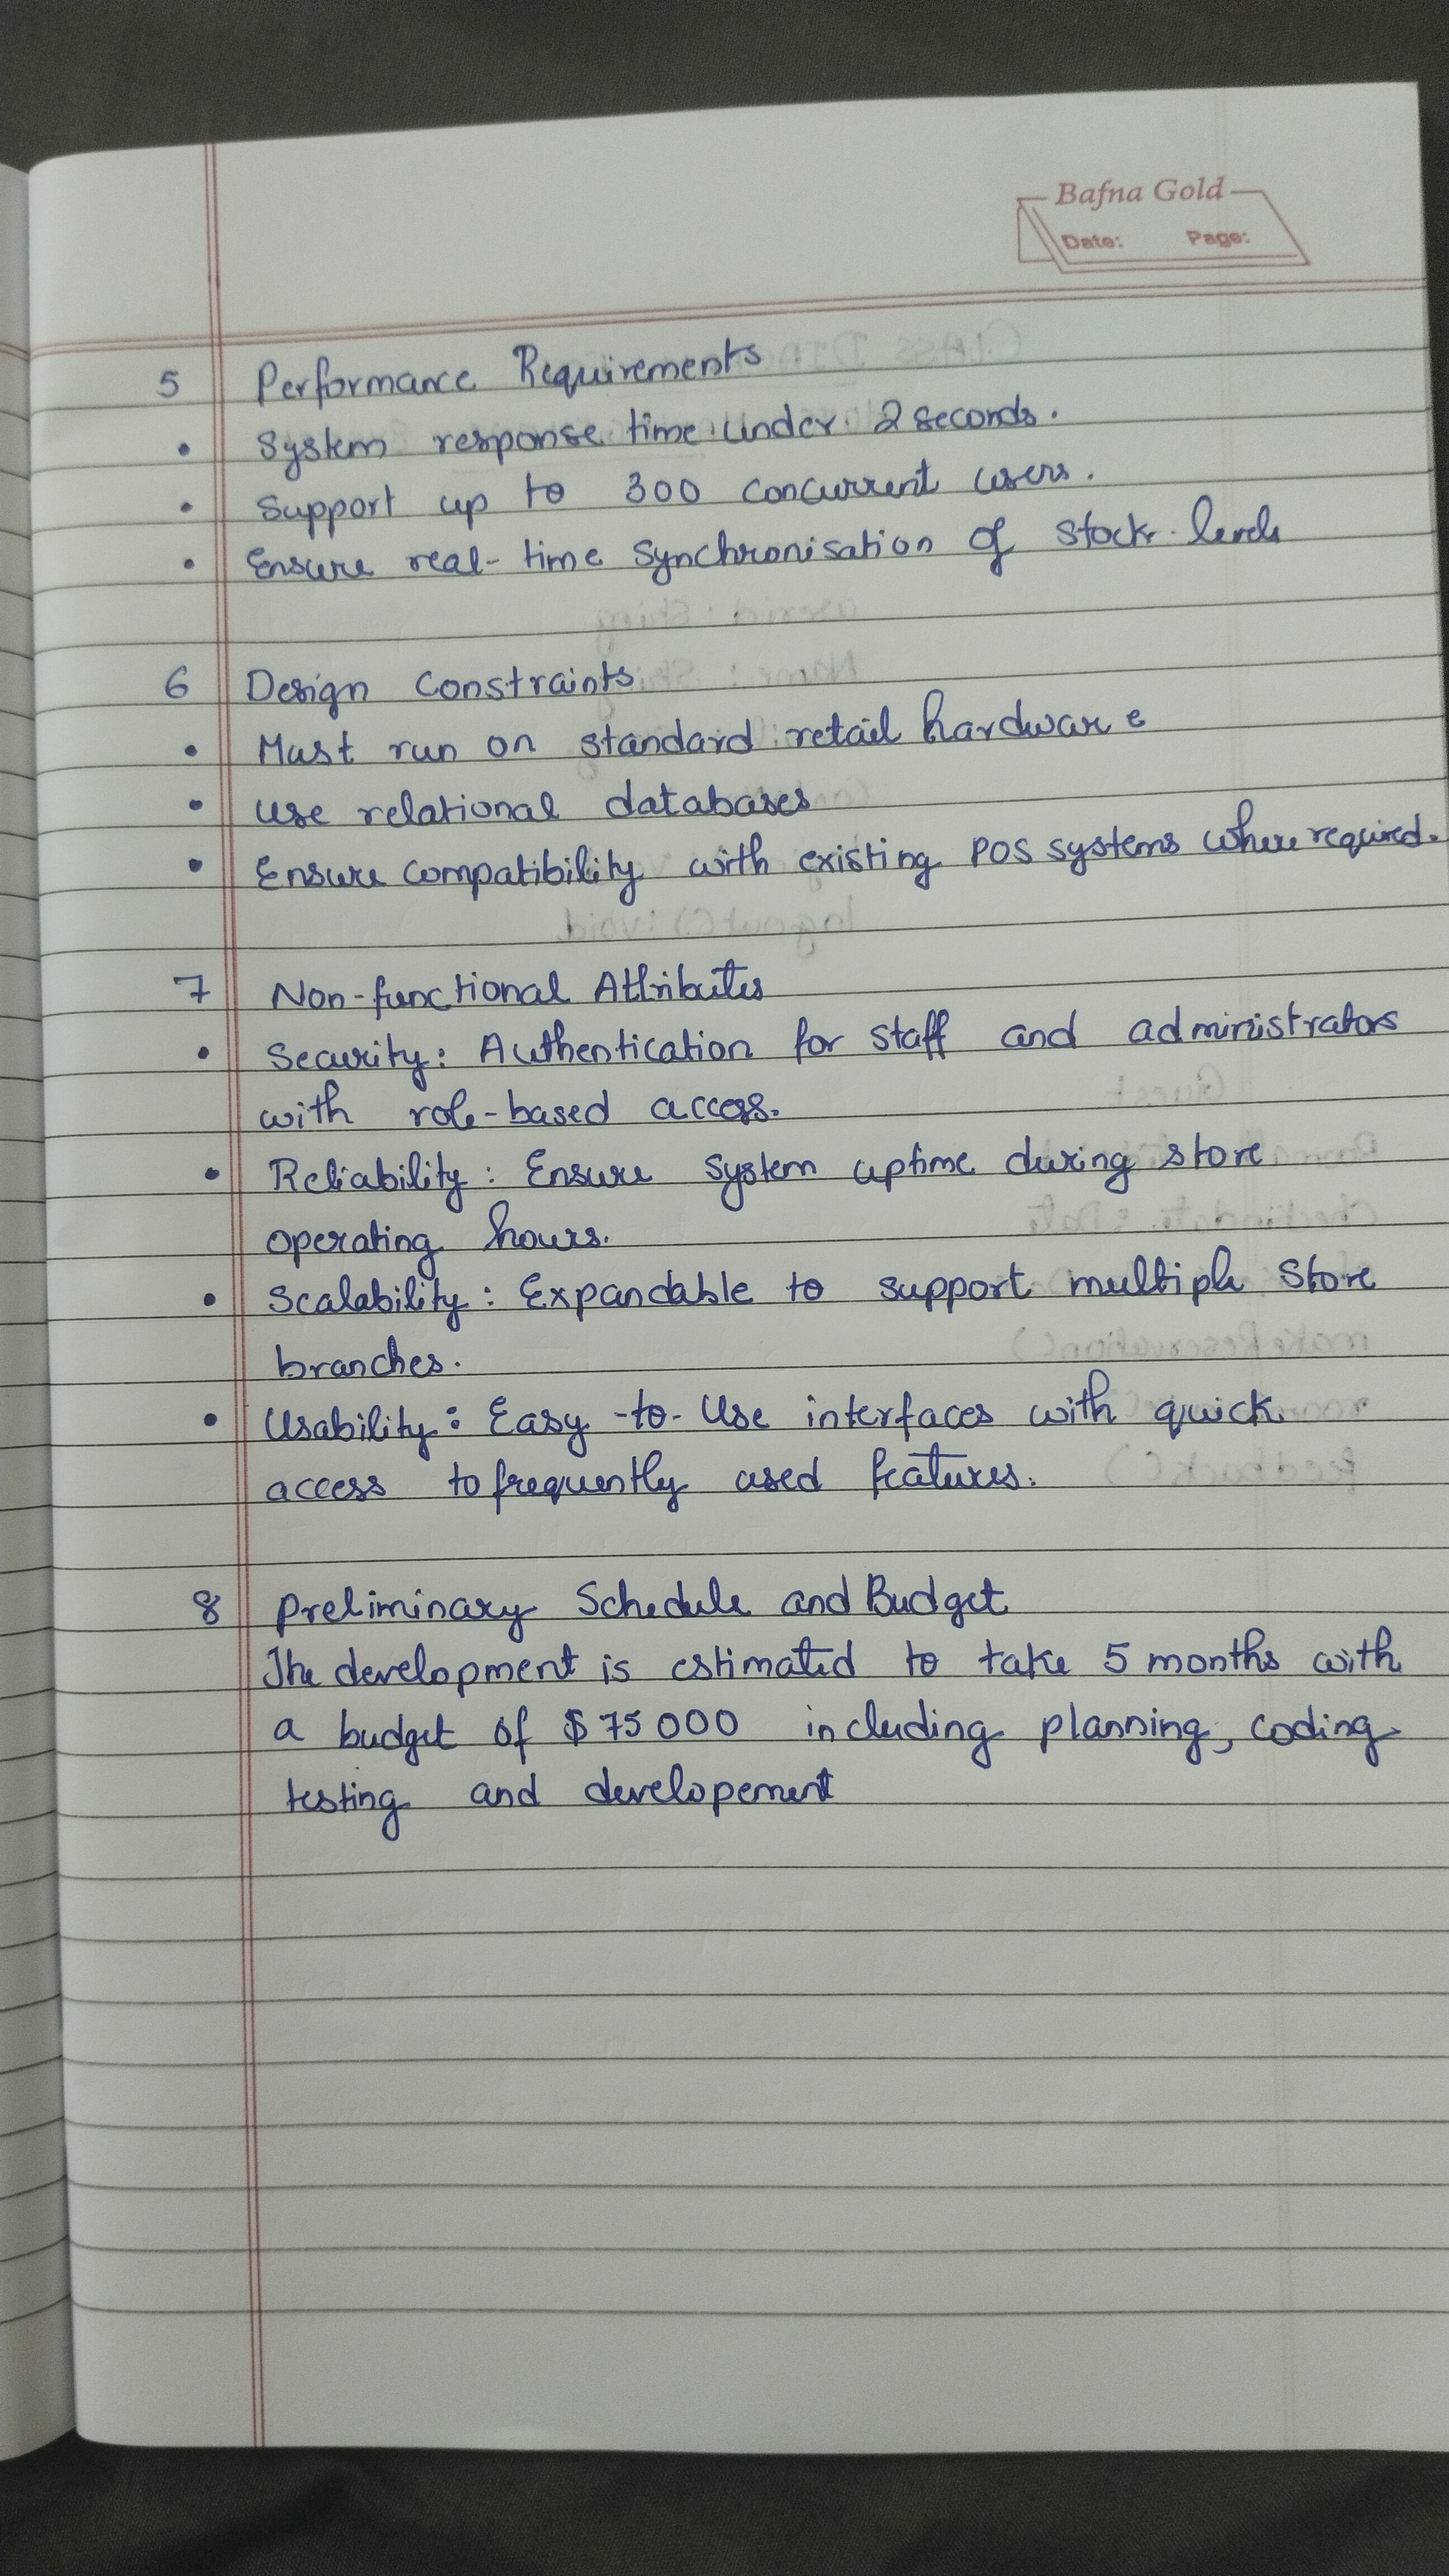 Bafna Gold
Date: Page:
5 Performance Requirements
• System response time under 2 seconds.
• Support up to 300 concurrent users.
• Ensure real-time synchronisation of stock levels
6 Design Constraints
• Must run on standard retail hardware
• use relational databases
• Ensure compatibility with existing POS systems where required.
7 Non-functional Attributes
• Security: Authentication for staff and administrators
with role-based access.
• Reliability: Ensure system uptime during store
operating hours.
• Scalability: Expandable to support multiple store
branches.
• Usability: Easy-to-Use interfaces with quick
access to frequently used features.
8 Preliminary Schedule and Budget
The development is estimated to take 5 months with
a budget of $75000 including planning, coding
testing and developement